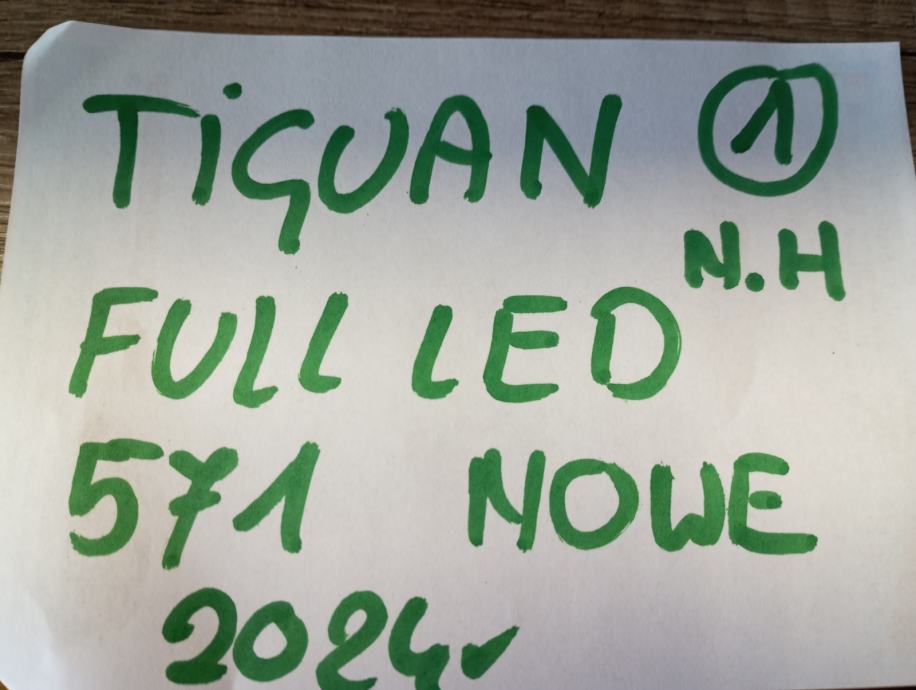 TiGUAN 1
N.H
FULL LED
571 NOWE
2024r